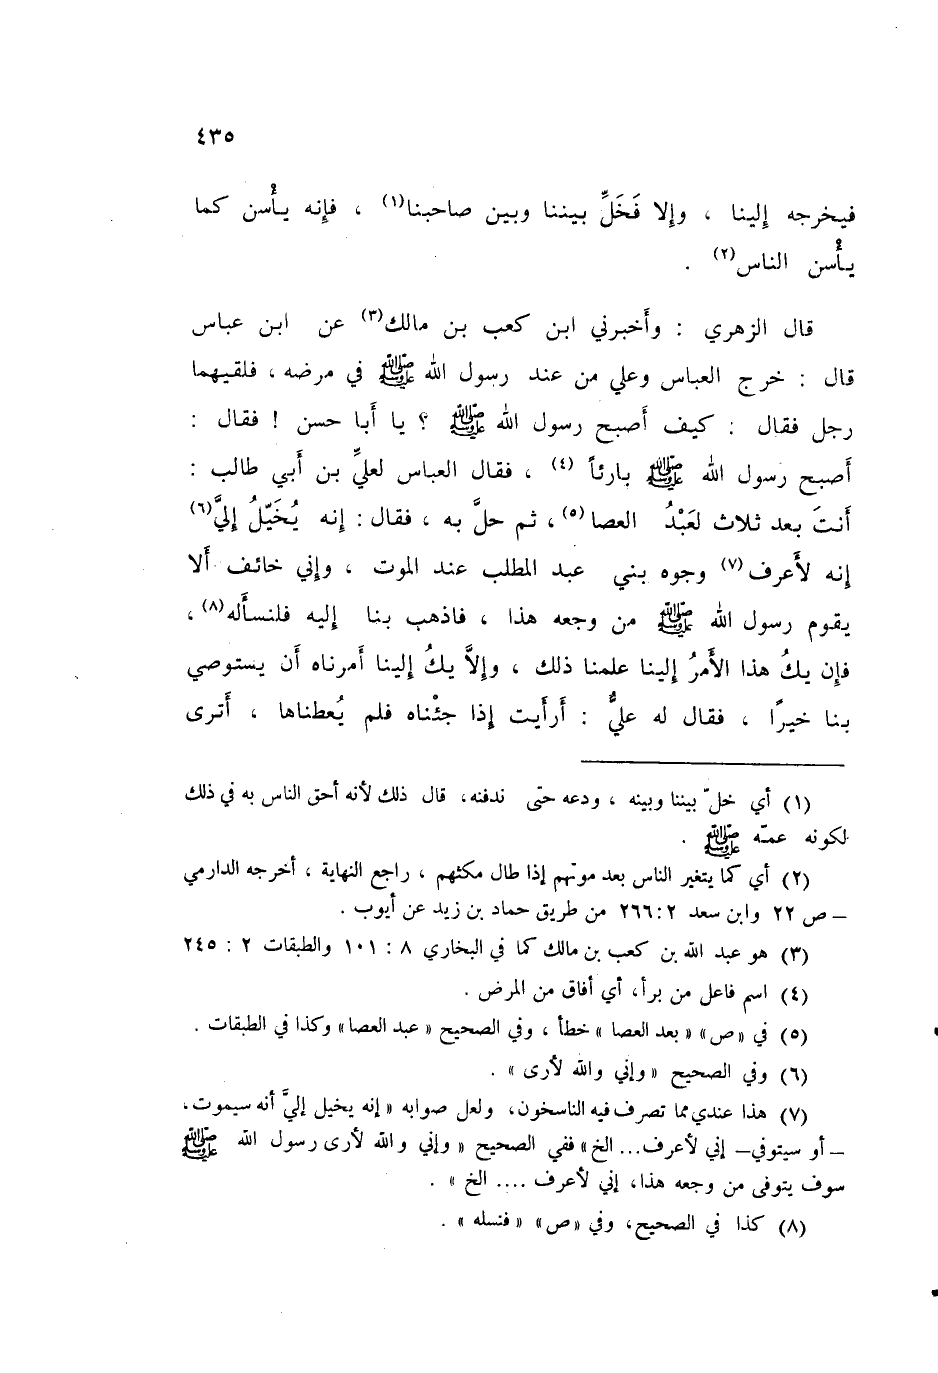 ٤٣٥
فيخرجه إلينا ، وإلا فَخَلِّ بيننا وبين صاحبنا(١) ، فإنه يأْسن كما
يأْسن الناس(٢) .
قال الزهري : وأَخبرني ابن كعب بن مالك(٣) عن ابن عباس
قال : خرج العباس وعلي من عند رسول الله ﷺ في مرضه ، فلقيهما
رجل فقال : كيف أَصبح رسول الله ﷺ ؟ يا أَبا حسن ! فقال :
أَصبح رسول الله ﷺ بارئاً (٤) ، فقال العباس لعليِّ بن أَبي طالب :
أَنتَ بعد ثلاث لعَبْدُ العصا(٥)، ثم حلَّ به ، فقال : إنه يُخَيّلُ إليَّ(٦)
إنه لأَعرف(٧) وجوه بني عبد المطلب عند الموت ، وإني خائف أَلا
يقوم رسول الله ﷺ من وجعه هذا ، فاذهب بنا إليه فلنسأَله(٨) ،
فإن يكُ هذا الأَمرُ إلينا علمنا ذلك ، وإلاَّ يكُ إلينا أَمرناه أَن يستوصي
بنا خيرًا ، فقال له عليٌّ : أَرأَيت إذا جئْناه فلم يُعطناها ، أَترى
(١) أي خلّ بيننا وبينه ، ودعه حتى ندفنه، قال ذلك لأنه أحق الناس به في ذلك
لكونه عمّه ﷺ .
(٢) أي كما يتغير الناس بعد موتهم إذا طال مكثهم ، راجع النهاية ، أخرجه الدارمي
– ص ٢٢ وابن سعد ٢ : ٢٦٦ من طريق حماد بن زيد عن أيوب .
(٣) هو عبد الله بن كعب بن مالك كما في البخاري ٨ : ١٠١ والطبقات ٢ : ٢٤٥
(٤) اسم فاعل من برأ، أي أفاق من المرض .
(٥) في «ص» «بعد العصا» خطأ ، وفي الصحيح «عبد العصا» وكذا في الطبقات .
(٦) وفي الصحيح «وإني والله لأرى» .
(٧) هذا عندي مما تصرف فيه الناسخون، ولعل صوابه «إنه يخيل إليَّ أنه سيموت،
– أو سيتوفي– إني لأعرف... الخ» ففي الصحيح «وإني والله لأرى رسول الله ﷺ
سوف يتوفى من وجعه هذا، إني لأعرف .... الخ» .
(٨) كذا في الصحيح، وفي «ص» «فنسله» .